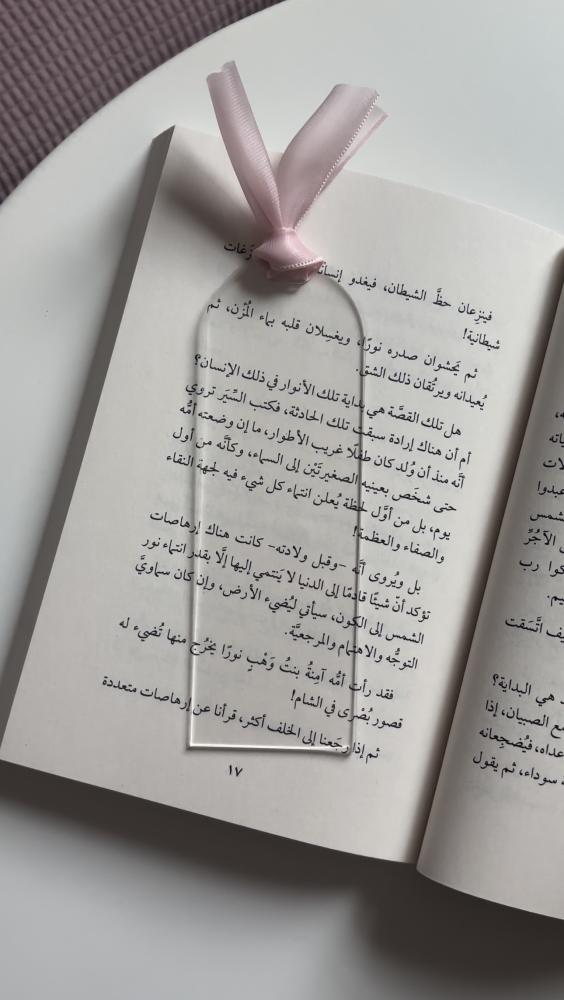 فينزِعان حظَّ الشيطان، فيغدو
شيطانية!
ثم يَحشوان صدره نورًا، ويغسِلان قلبه بماء المُزْن، ثم
يُعيدانه ويرتُقان ذلك الشق.
هل تلك القصَّة هي بداية تلك الأنوار في ذلك الإنسان؟
أم أن هناك إرادة سبقت تلك الحادثة، فكتب السِّيَر تروي
أنَّه منذ أن وُلد كان طفلًا غريب الأطوار، ما إن وضعته أمُّه
حتى شخَص بعينيه الصغيرتَيْن إلى السماء، وكأنَّه من أول
يوم، بل من أوَّل لحظة يُعلن انتماء كل شيء فيه لجهة النقاء
والصفاء والعظمة!
بل ويُروى أنَّه -وقبل ولادته- كانت هناك إرهاصات
تؤكد أنّ شيئًا قادمًا إلى الدنيا لا يَنتمي إليها إلَّا بقدر انتماء نور
الشمس إلى الكون، سيأتي ليُضيء الأرض، وإن كان سماويَّ
التوجُّه والاهتمام والمرجعيَّة.
فقد رأت أمُّه آمِنةُ بنتُ وَهْبٍ نورًا يخرُج منها تُضيء له
قصور بُصْرى في الشام!
ثم إذا رجَعنا إلى الخلف أكثر، قرأنا عن إرهاصات متعددة
١٧
عبدوا
شمس
رب
يف اتَّسَقت
هي البداية؟
مع الصبيان، إذا
فيُضجِعانه
سوداء، ثم يقول